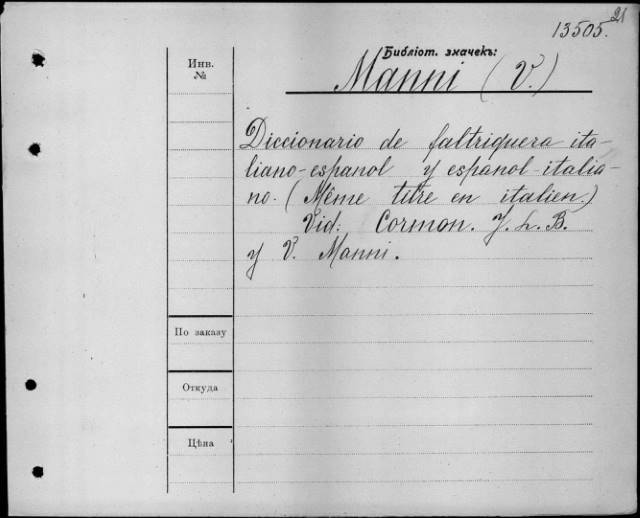 21
13505.
Библіот. значекъ:
Manni (V.)
Инв.
№
Diccionario de faltriquera ita-
liano-espanol y espanol-italia-
no. (Même titre en italien.)
Vid: Cormon. J. L. B.
y V. Manni.
По заказу
Откуда
Цѣна